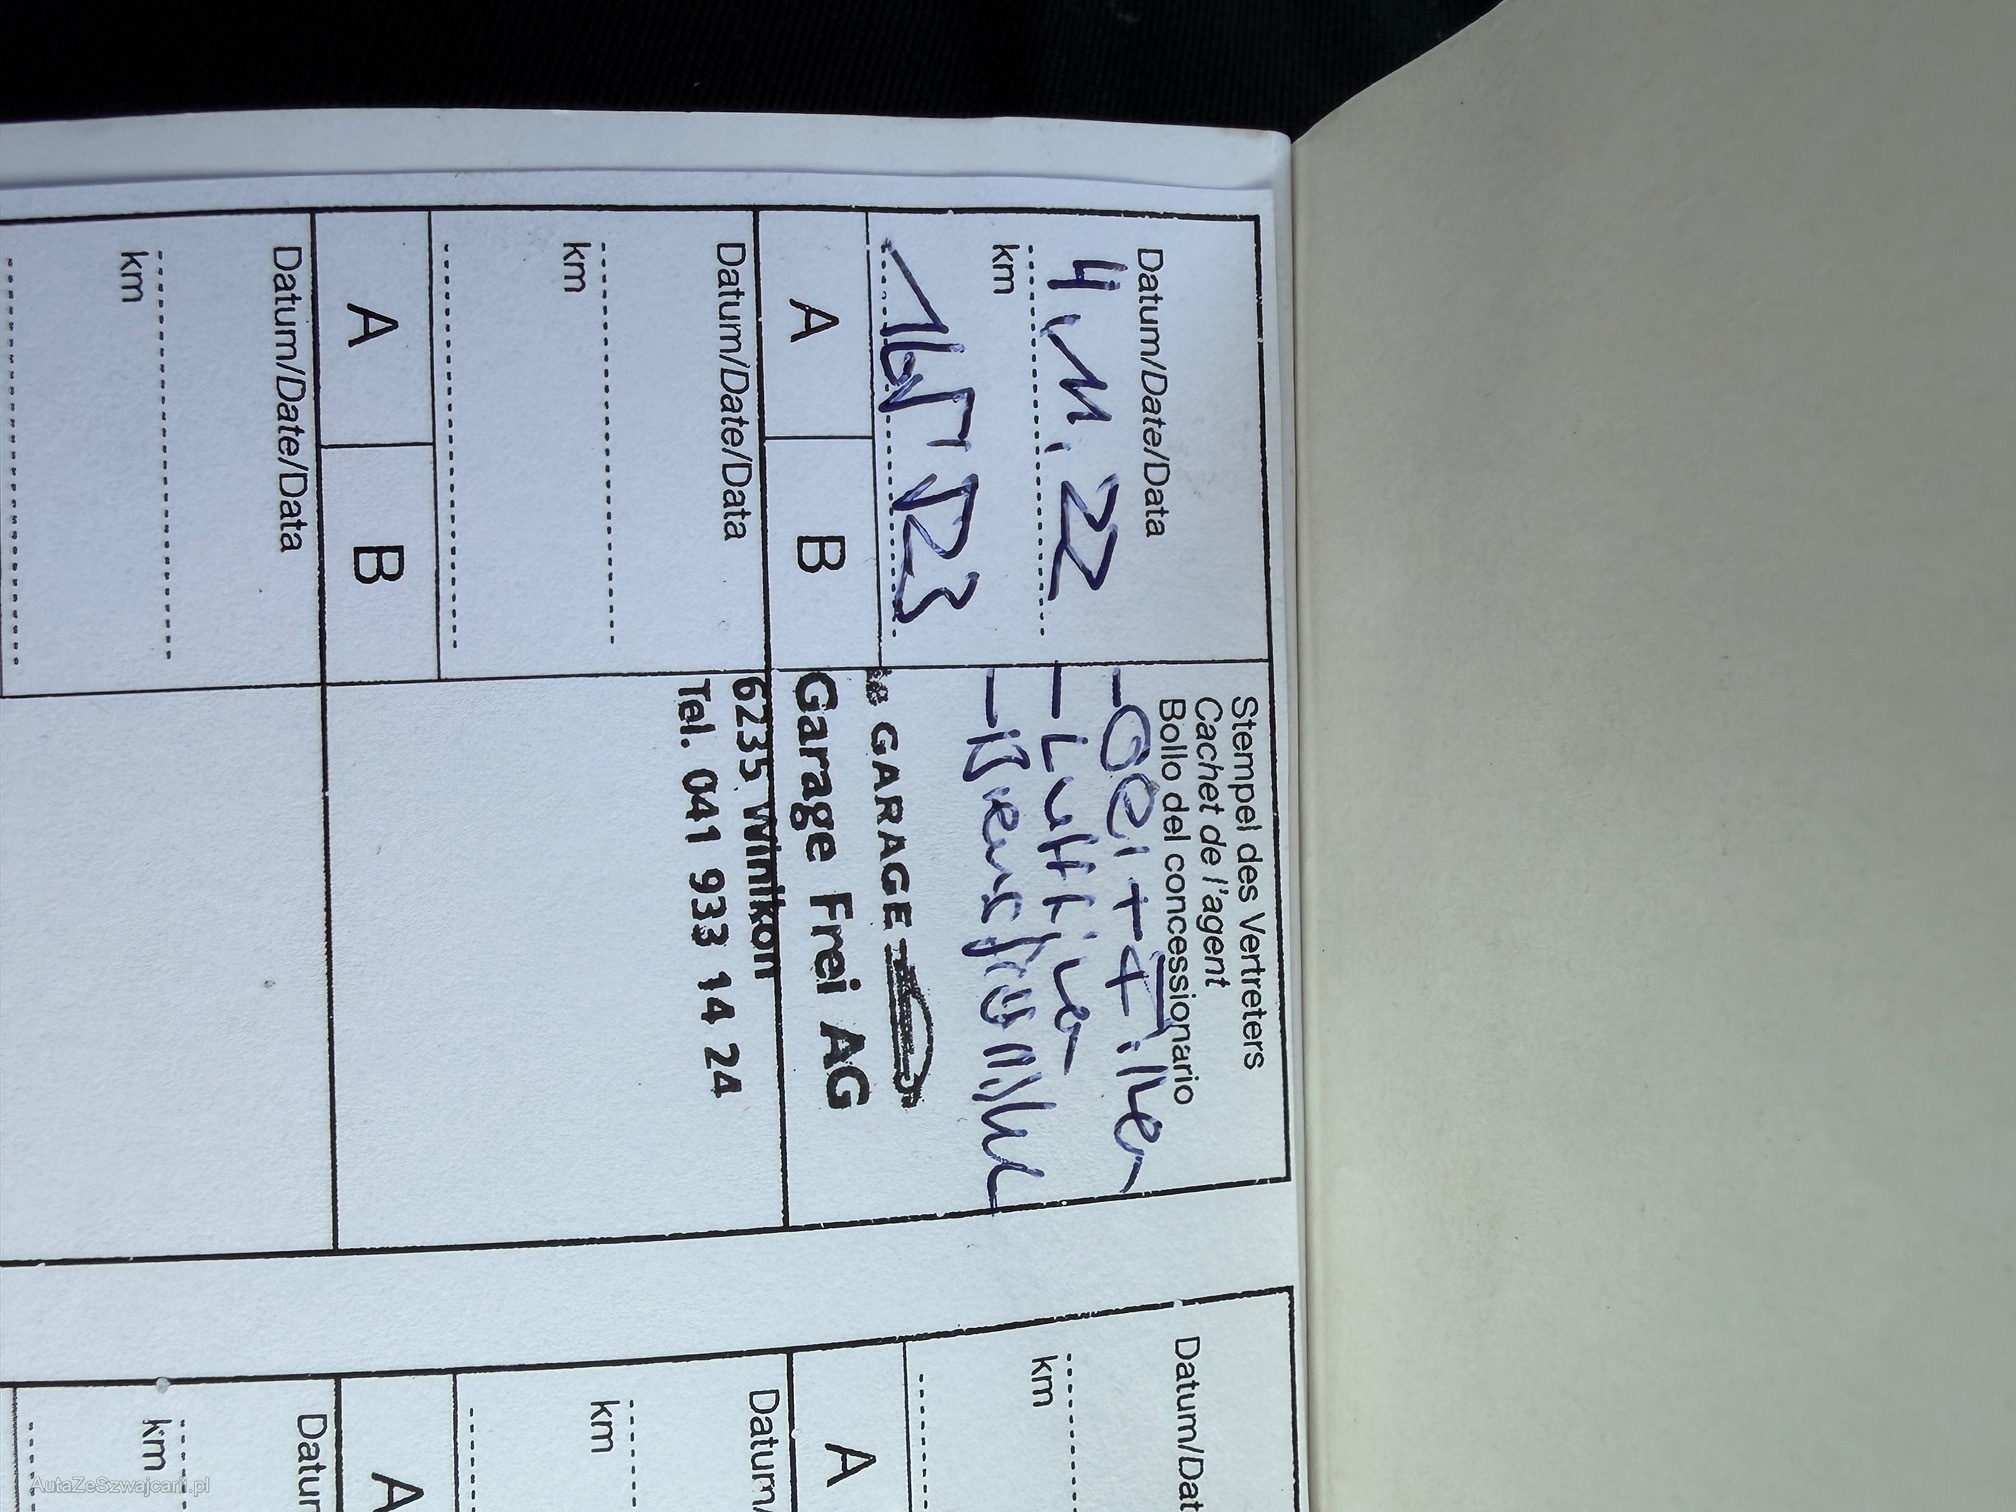 Datum/Date/Data
4.11.22
km
Stempel des Vertreters
Cachet de l'agent
Bollo del concessionario
- Oel + Filter
- Luftfilter
le GARAGE
Garage Frei AG
6235 Winikon
Tel. 041 933 14 24
A
B
Datum/Date/Data
km
A
B
Datum/Date/Data
km
Datum/Dat
km
A
Datum/
km
A
Datur
km
AutaZeSzwajcarii.pl